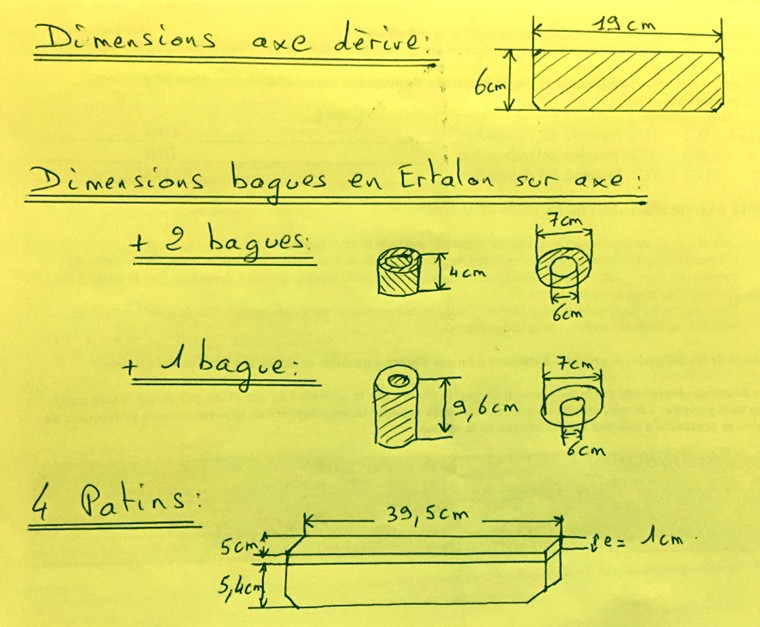 Dimensions axe dèrive:
19cm
6cm
Dimensions bagues en Ertalon sur axe:
+ 2 bagues:
4cm
7cm
6cm
+ 1 bague:
9,6cm
7cm
6cm
4 Patins:
39,5cm
5cm
e= 1cm
5,4cm